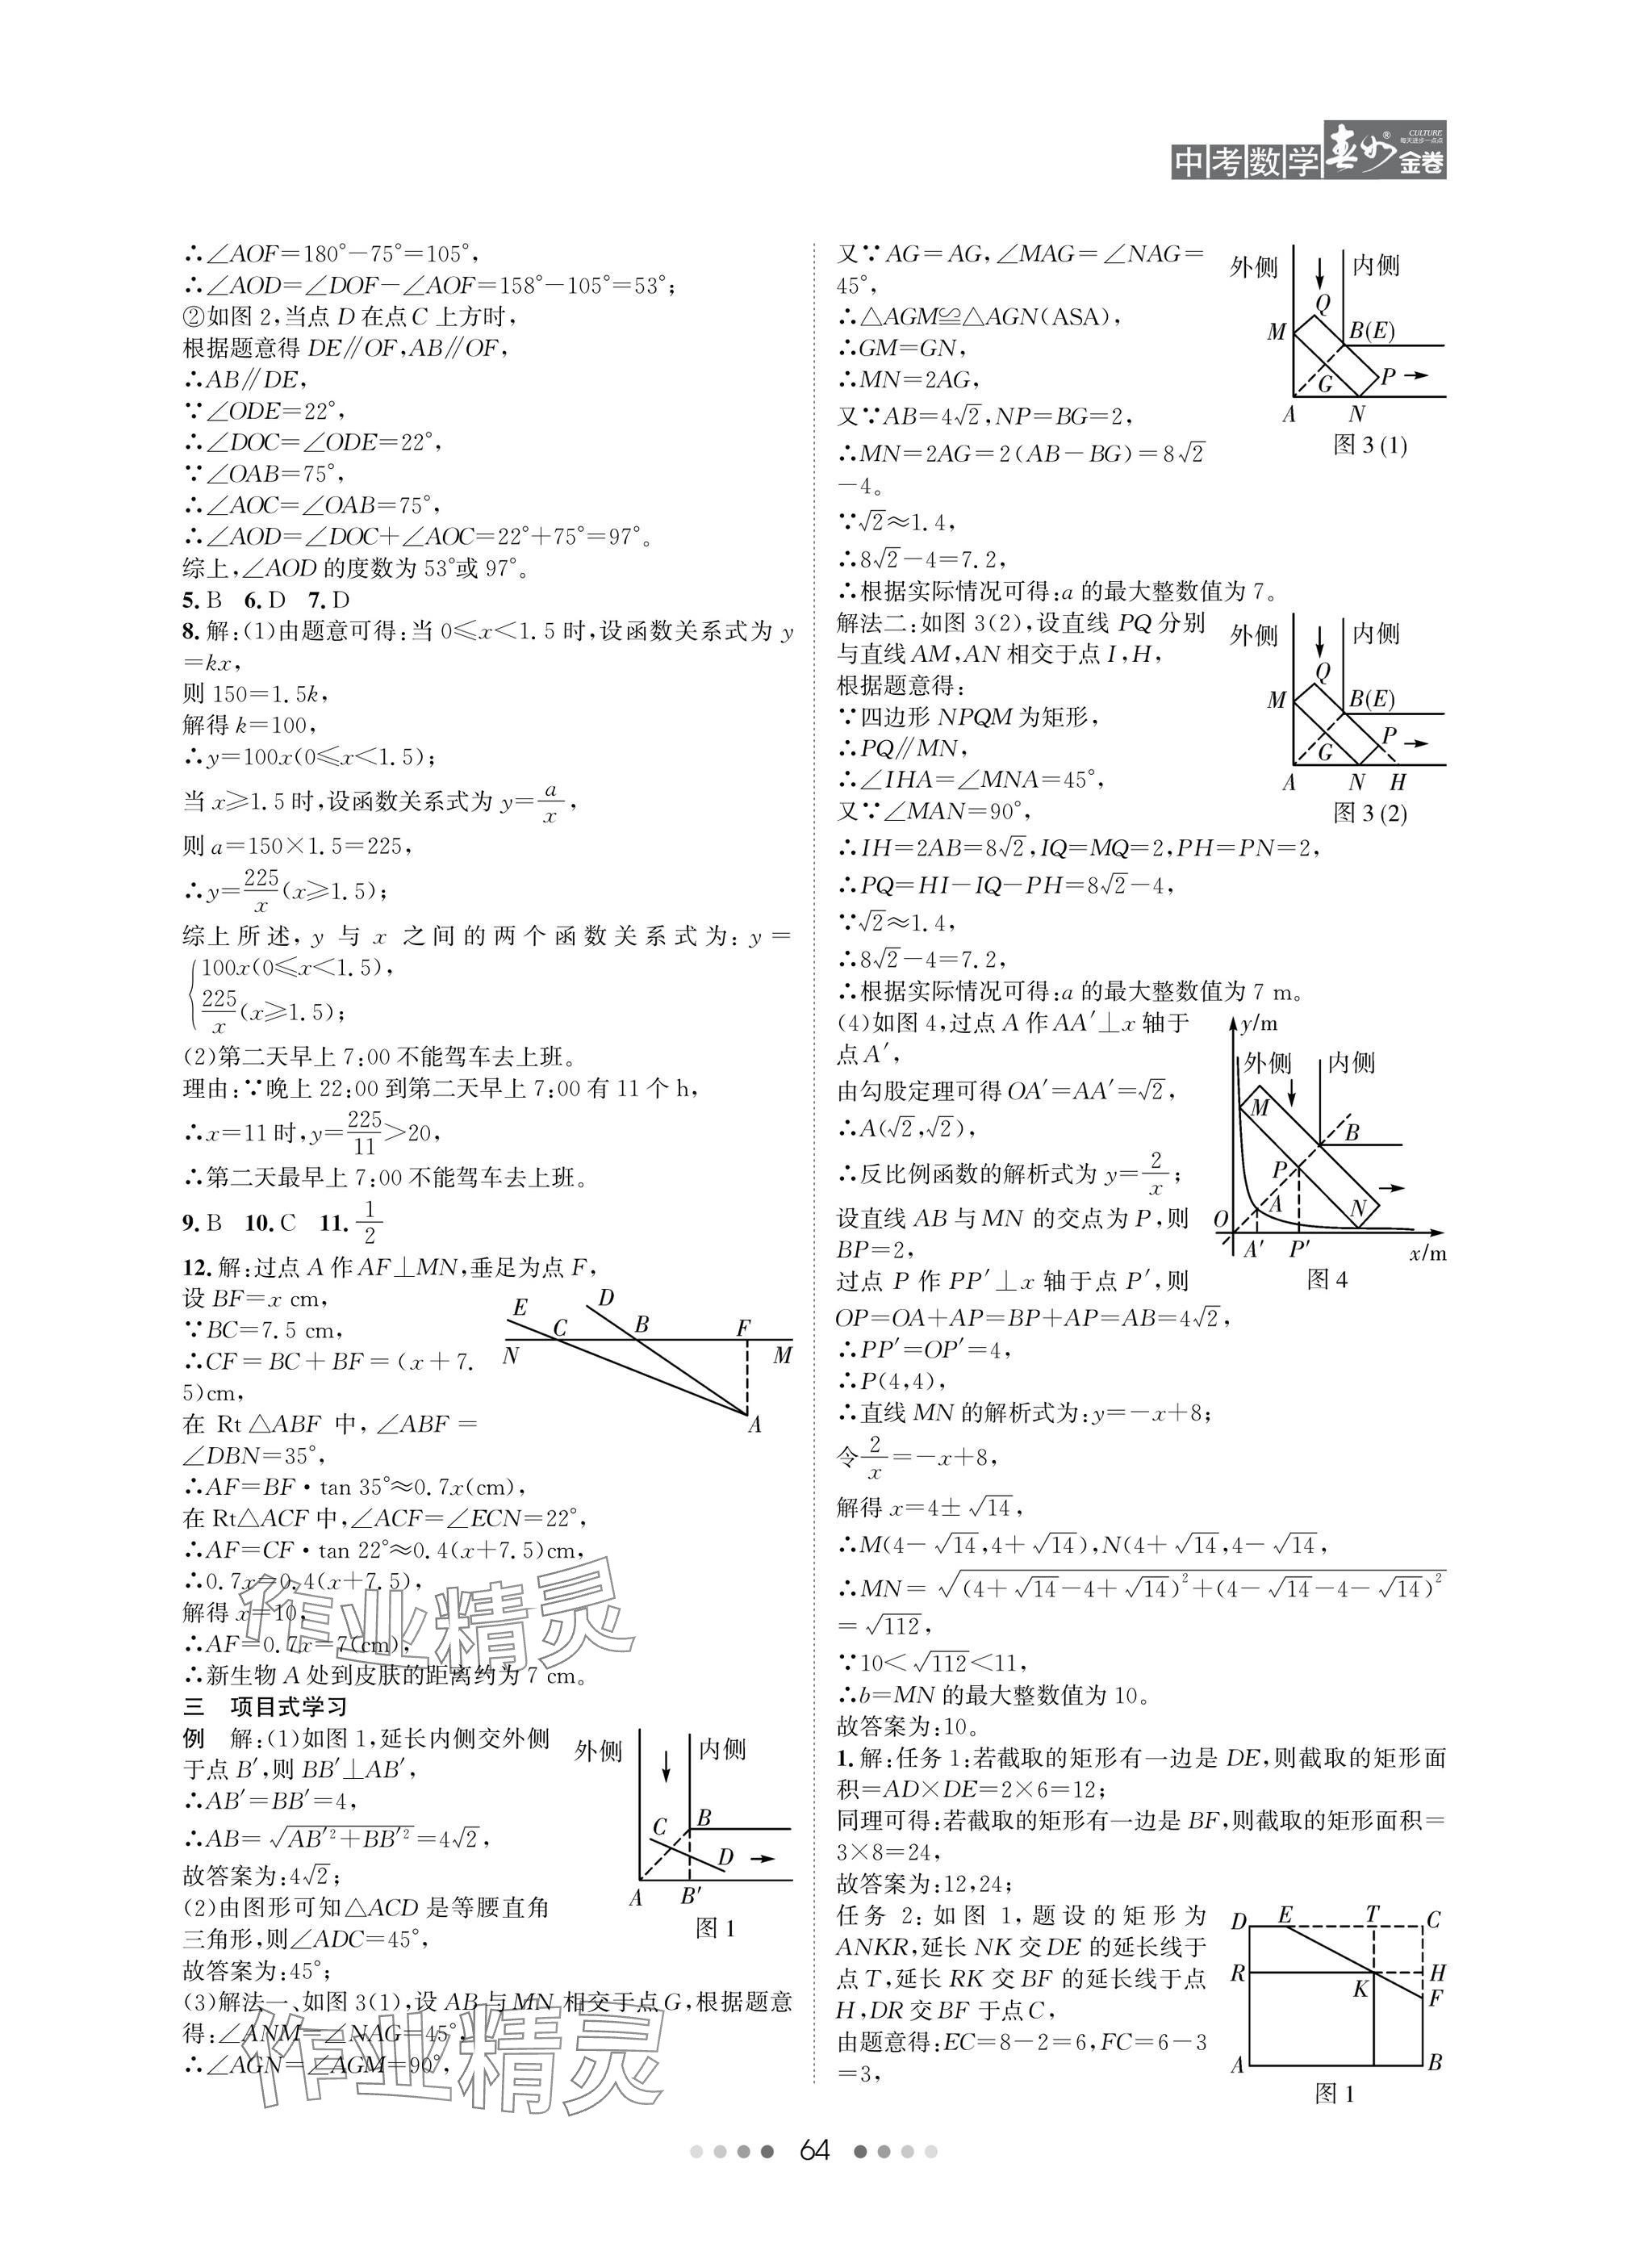 中考数学 春如®金卷
CULTURE
每天进步一点点
∴∠AOF=180°-75°=105°,
∴∠AOD=∠DOF-∠AOF=158°-105°=53°;
②如图 2,当点 D 在点 C 上方时,
根据题意得 DE∥OF,AB∥OF,
∴AB∥DE,
∵∠ODE=22°,
∴∠DOC=∠ODE=22°,
∵∠OAB=75°,
∴∠AOC=∠OAB=75°,
∴∠AOD=∠DOC+∠AOC=22°+75°=97°。
综上,∠AOD 的度数为 53°或 97°。
5. B 6. D 7. D
8. 解:(1)由题意可得:当 0≤x<1.5 时,设函数关系式为 y
=kx,
则 150=1.5k,
解得 k=100,
∴y=100x(0≤x<1.5);
当 x≥1.5 时,设函数关系式为 y=a/x,
则 a=150×1.5=225,
∴y=225/x(x≥1.5);
综上所述, y 与 x 之间的两个函数关系式为: y =
{100x(0≤x<1.5),
225/x(x≥1.5);
(2)第二天早上 7:00 不能驾车去上班。
理由:∵晚上 22:00 到第二天早上 7:00 有 11 个 h,
∴x=11 时,y=225/11>20,
∴第二天最早上 7:00 不能驾车去上班。
9. B 10. C 11. 1/2
12. 解:过点 A 作 AF⊥MN,垂足为点 F,
设 BF=x cm,
∵BC=7.5 cm,
∴CF=BC+BF=(x+7.
5)cm,
在 Rt△ABF 中,∠ABF=
∠DBN=35°,
E D C B F N M A
∴AF=BF·tan 35°≈0.7x(cm),
在 Rt△ACF 中,∠ACF=∠ECN=22°,
∴AF=CF·tan 22°≈0.4(x+7.5)cm,
∴0.7x=0.4(x+7.5),
解得 x=10,
∴AF=0.7x=7(cm),
∴新生物 A 处到皮肤的距离约为 7 cm。
作业精灵
三 项目式学习
例 解:(1)如图 1,延长内侧交外侧
于点 B′,则 BB′⊥AB′,
∴AB′=BB′=4,
∴AB=√(AB′²+BB′²)=4√2,
故答案为:4√2;
(2)由图形可知△ACD 是等腰直角
三角形,则∠ADC=45°,
故答案为:45°;
外侧 内侧
C B D A B′
图 1
(3)解法一、如图 3(1),设 AB 与 MN 相交于点 G,根据题意
得:∠ANM=∠NAG=45°,
∴∠AGN=∠AGM=90°,
作业精灵
又∵AG=AG,∠MAG=∠NAG=
45°,
∴△AGM≌△AGN(ASA),
∴GM=GN,
∴MN=2AG,
又∵AB=4√2,NP=BG=2,
∴MN=2AG=2(AB-BG)=8√2
-4。
∵√2≈1.4,
∴8√2-4=7.2,
∴根据实际情况可得:a 的最大整数值为 7。
外侧 内侧
Q M B(E) G P A N
图 3(1)
解法二:如图 3(2),设直线 PQ 分别
与直线 AM,AN 相交于点 I,H,
根据题意得:
∵四边形 NPQM 为矩形,
∴PQ∥MN,
∴∠IHA=∠MNA=45°,
又∵∠MAN=90°,
外侧 内侧
Q M B(E) G P A N H
图 3(2)
∴IH=2AB=8√2,IQ=MQ=2,PH=PN=2,
∴PQ=HI-IQ-PH=8√2-4,
∵√2≈1.4,
∴8√2-4=7.2,
∴根据实际情况可得:a 的最大整数值为 7 m。
(4)如图 4,过点 A 作 AA′⊥x 轴于
点 A′,
由勾股定理可得 OA′=AA′=√2,
∴A(√2,√2),
∴反比例函数的解析式为 y=2/x;
设直线 AB 与 MN 的交点为 P,则
BP=2,
过点 P 作 PP′⊥x 轴于点 P′,则
y/m
外侧 内侧
M B P A N O A′ P′ x/m
图 4
OP=OA+AP=BP+AP=AB=4√2,
∴PP′=OP′=4,
∴P(4,4),
∴直线 MN 的解析式为:y=-x+8;
令2/x=-x+8,
解得 x=4±√14,
∴M(4-√14,4+√14),N(4+√14,4-√14,
∴MN=√((4+√14-4+√14)²+(4-√14-4-√14)²
=√112,
∵10<√112<11,
∴b=MN 的最大整数值为 10。
故答案为:10。
1. 解:任务 1:若截取的矩形有一边是 DE,则截取的矩形面
积=AD×DE=2×6=12;
同理可得:若截取的矩形有一边是 BF,则截取的矩形面积=
3×8=24,
故答案为:12,24;
任务 2:如图 1,题设的矩形为
ANKR,延长 NK 交 DE 的延长线于
点 T,延长 RK 交 BF 的延长线于点
H,DR 交 BF 于点 C,
由题意得:EC=8-2=6,FC=6-3
=3,
D E T C R K H F A B
图 1
64